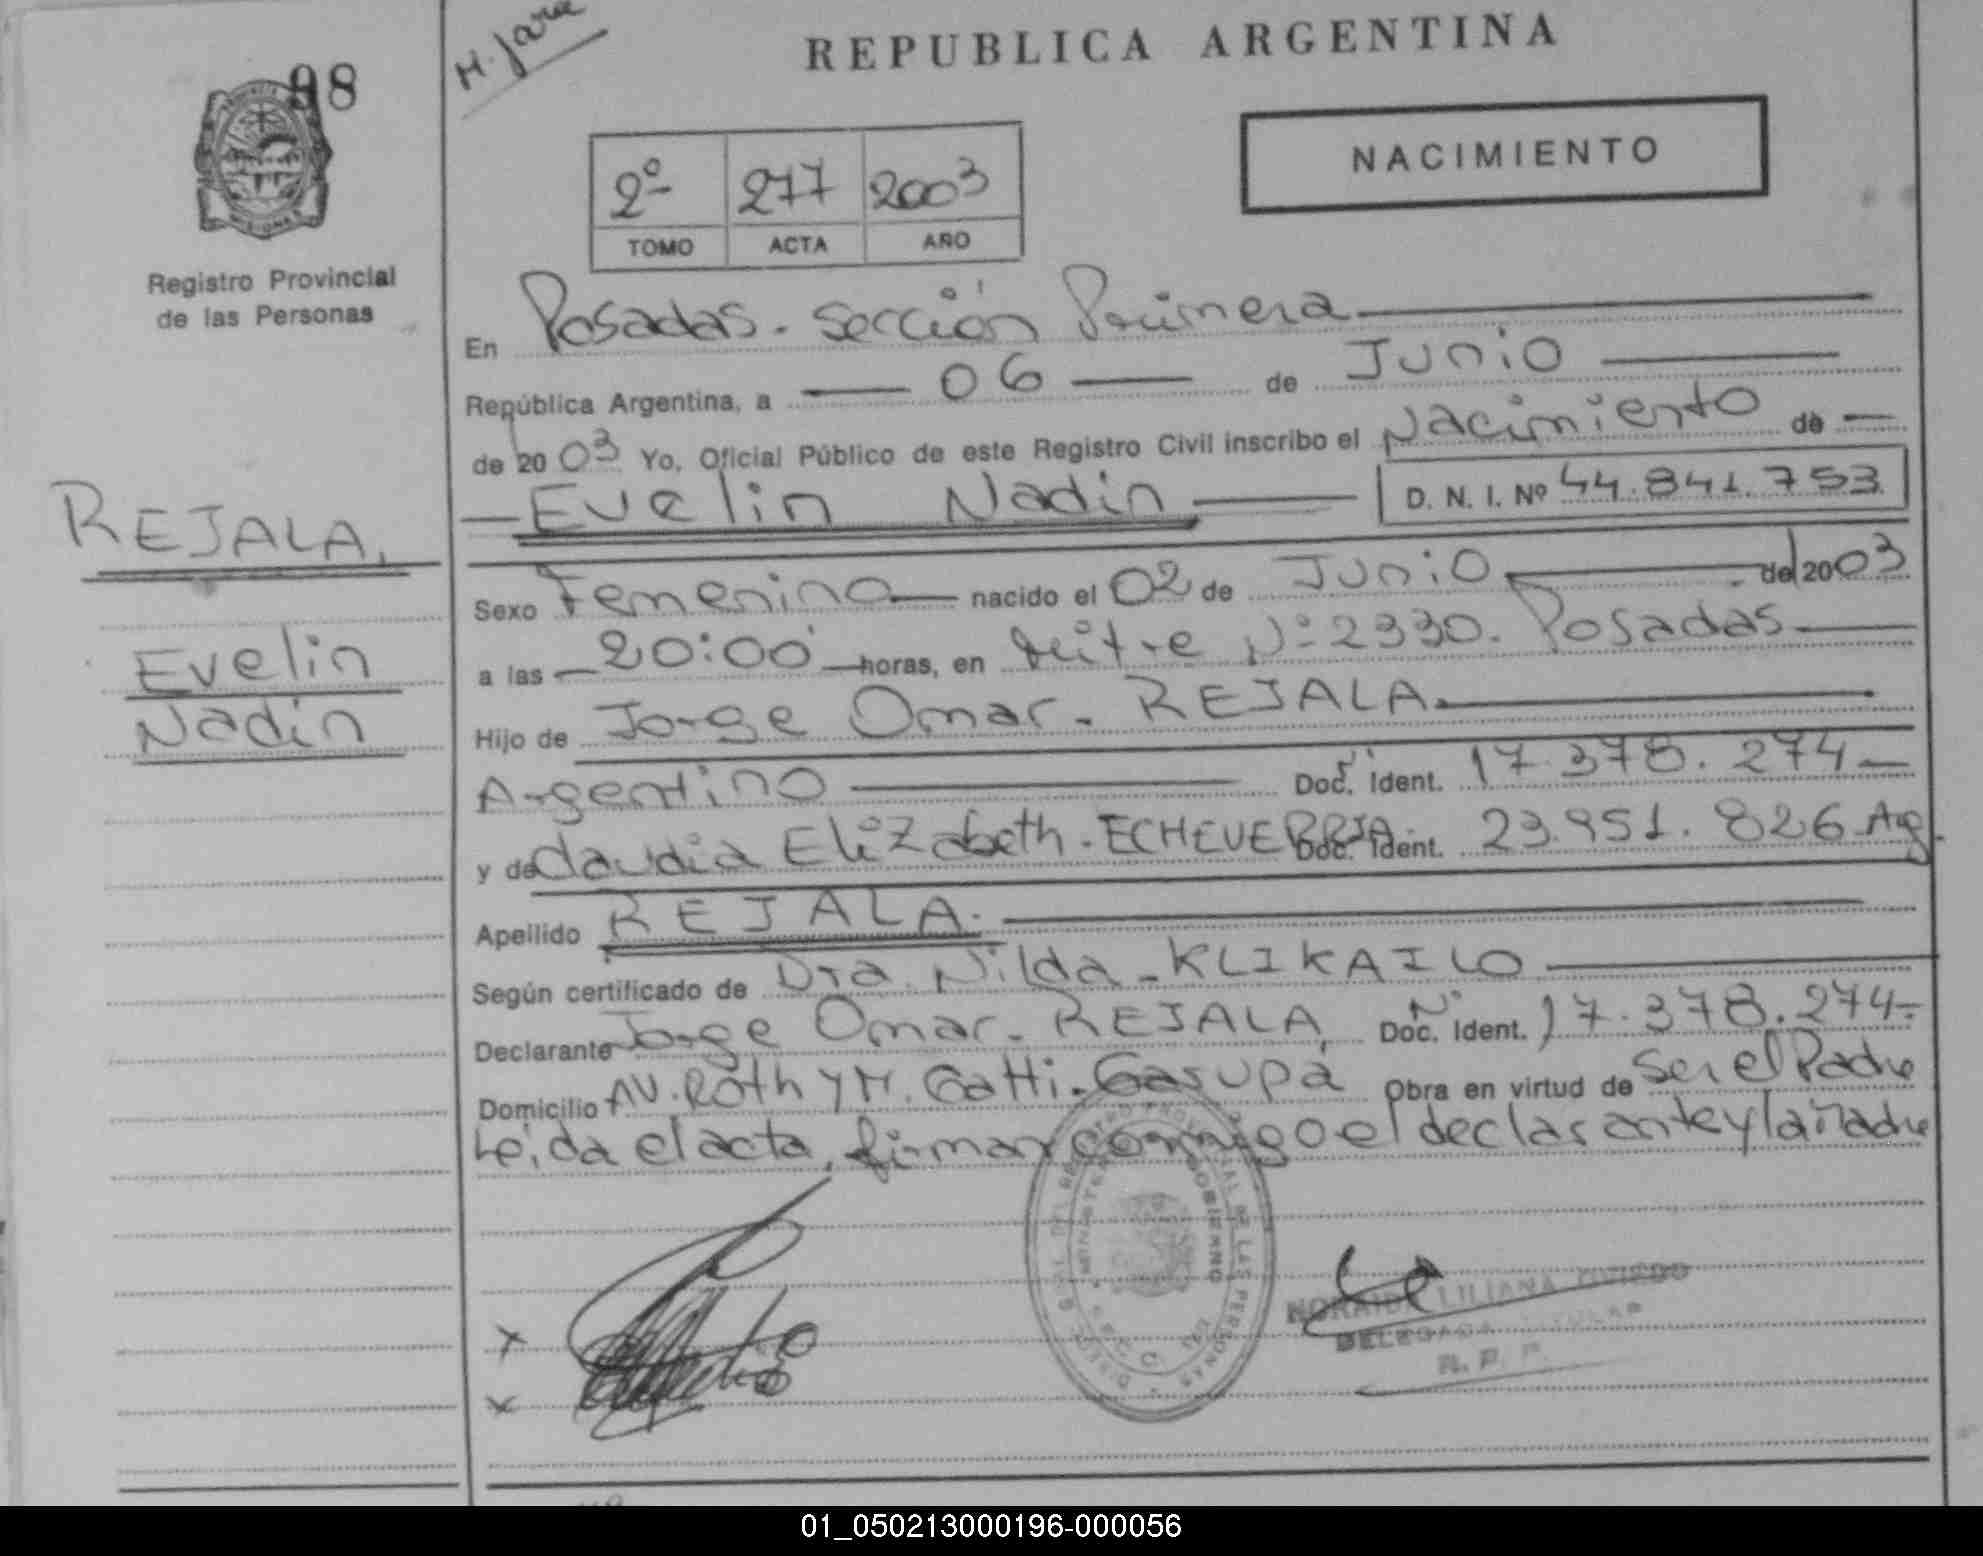 98
H. Jara
REPUBLICA ARGENTINA
NACIMIENTO
2º 277 2003
TOMO ACTA AÑO
Registro Provincial
de las Personas
En Posadas. Sección Primera
República Argentina, a 06 de Junio
de 2003 Yo, Oficial Público de este Registro Civil inscribo el Nacimiento de
Evelin Nadin D. N. I. Nº 44.841.753
REJALA,
Evelin
Nadin
Sexo Femenino nacido el 02 de Junio de 2003
a las 20:00 horas, en Mitre Nº 2330. Posadas
Hijo de Jorge Omar. REJALA.
Argentino Doc. Ident. 17.378.274
y de Claudia Elizabeth. ECHEVERRIA. Doc. Ident. 23.951.826 Arg.
Apellido REJALA.
Según certificado de Dra. Nilda. KLIKAILO
Declarante Jorge Omar. REJALA, Doc. Ident. Nº 17.378.274-
Domicilio AV. Roth y M. Gatti. Garupá Obra en virtud de Ser el Padre
Leida el acta, firman conmigo el declarante y la Madre
NORAIDA LILIANA OVIEDO
DELEGADA TITULAR
R. P. P.
01_050213000196-000056